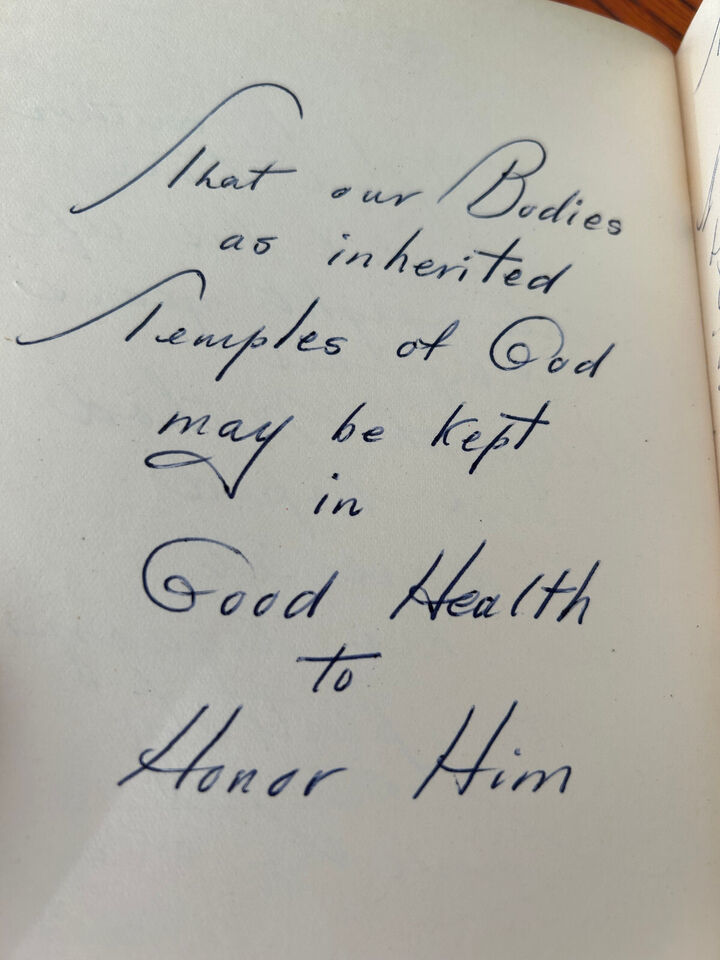 That our Bodies
as inherited
Temples of God
may be kept
in
Good Health
to
Honor Him